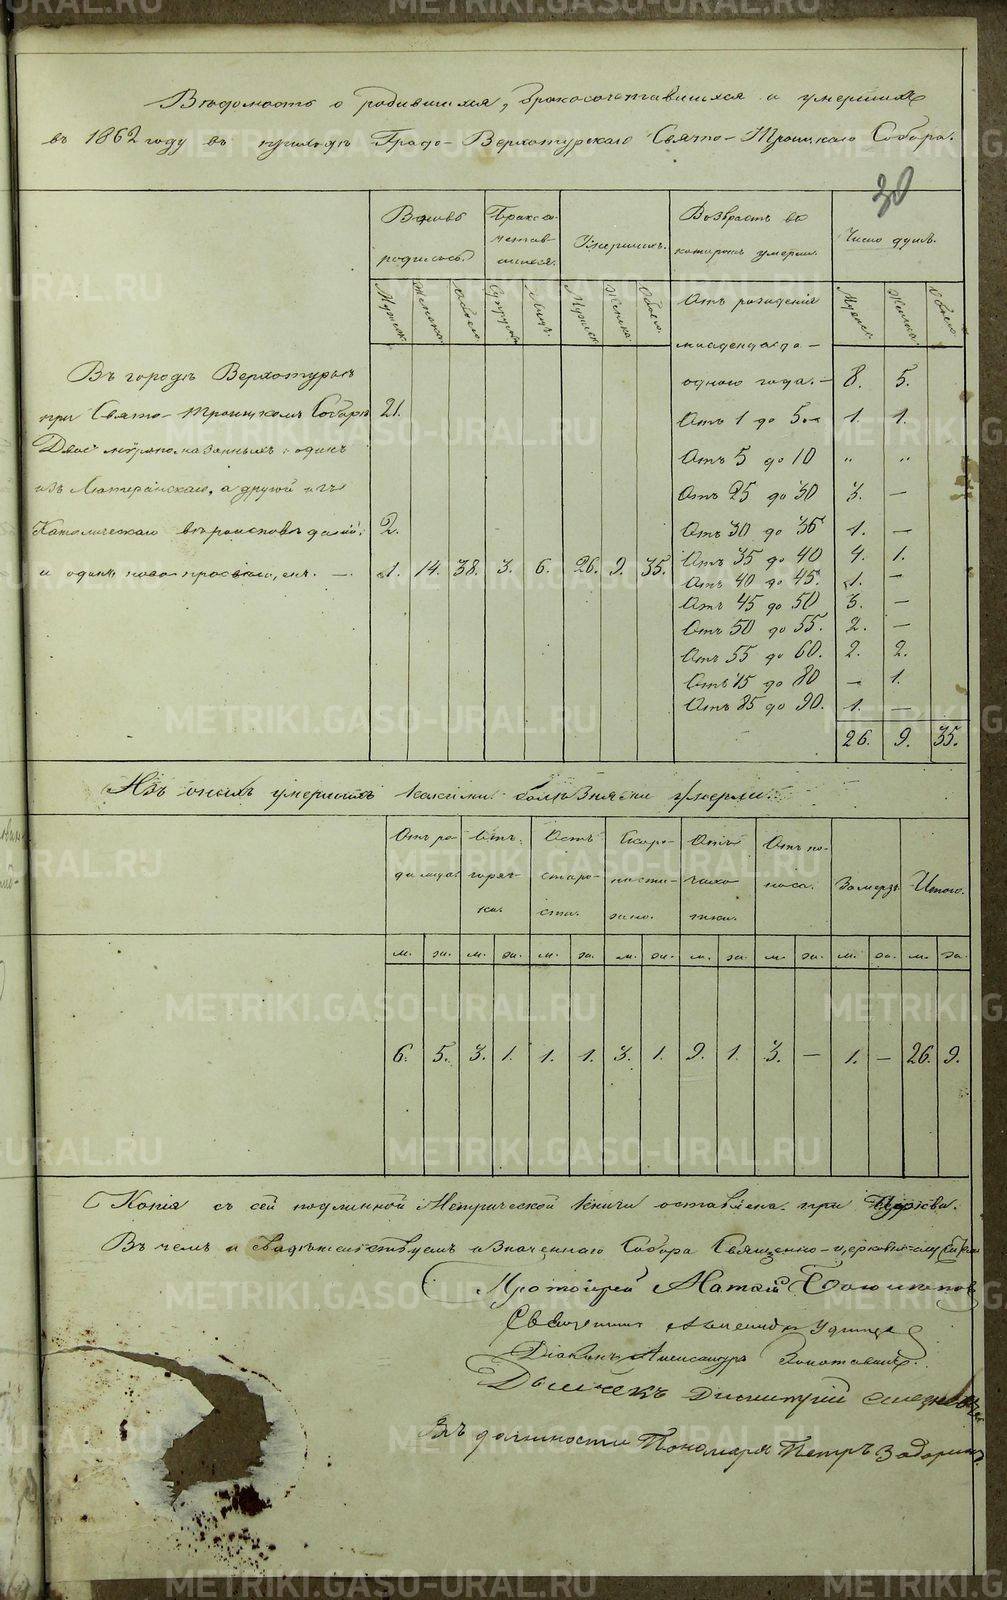 Вѣдомость о родившихся, бракосочетавшихся и умершихъ
въ 1862 году въ приходѣ Градо-Верхотурскаго Свято-Троицкаго Собора.
30
Вновь родилось.
Бракосочетавшихся.
Умершихъ.
Возрастъ въ которомъ умерли.
Число душъ.
Мужск. Женска. Обоего Супруж. Лицъ. Мужеск. Женска. Обоего. Мужеск. Женска. Обоего.
Отъ рождения младенца до одного года. — 8. 5.
Отъ 1 до 5. — 1. 1.
Отъ 5 до 10 " "
Отъ 25 до 30 3. —
Отъ 30 до 35 1. —
Отъ 35 до 40 4. 1.
Отъ 40 до 45. 1. —
Отъ 45 до 50 3. —
Отъ 50 до 55. 2. —
Отъ 55 до 60. 2. 2.
Отъ 75 до 80 — 1.
Отъ 85 до 90. 1. —
26. 9. 35.
Въ городѣ Верхотурьѣ
при Свято-Троицкомъ Соборѣ 21.
изъ Лютеранскаго, а другой изъ
Католическаго вѣроисповѣданій; 2.
и одинъ новопросвѣщен. — 1. 14. 38. 3. 6. 26. 9. 35.
Изъ оныхъ умершихъ какими болѣзнями умерли:
Отъ родимца. Отъ горячки. Отъ старости. Скоропостижно. Отъ чахотки. Отъ поноса. Замерзъ Итого.
м. ж. м. ж. м. ж. м. ж. м. ж. м. ж. м. ж. м. ж.
6. 5. 3. 1. 1. 1. 3. 1. 9. 1. 3. — 1. — 26. 9.
Копія съ сей подлинной Метрической книги оставлена при Церкви.
Въ чемъ и свидѣтельствуемъ означеннаго Собора Священно-церковно-служители
Протоіерей
Священникъ
Діаконъ Александръ
Дьячекъ Димитрій
Въ должности Пономаря Петръ
METRIKI.GASO-URAL.RU